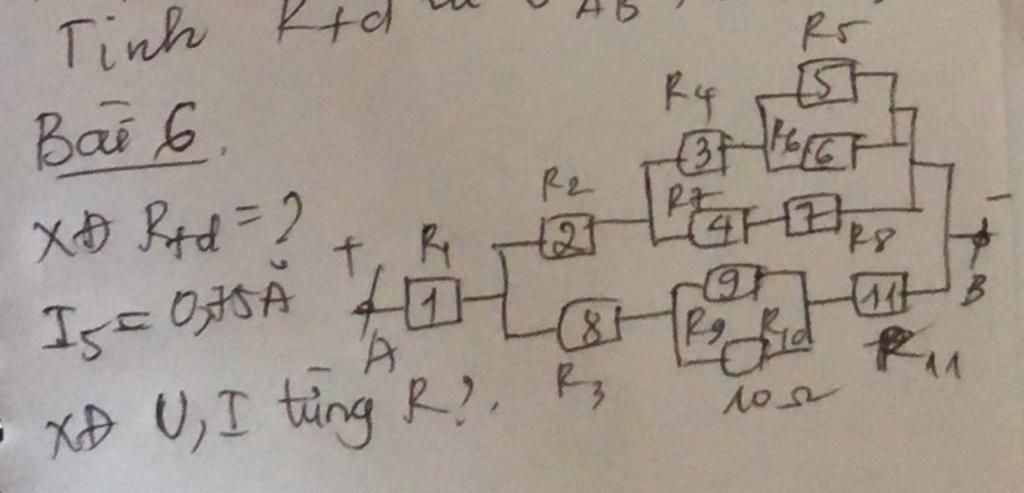 Tính R+d
AB
Bài 6.
XĐ R+d = ?
I5 = 0,75A
XĐ U, I từng R?.
+
A
R1
1
R2
2
R4
3
R5
5
R6
6
R7
4
7
R8
R3
8
9
R9
R10
10Ω
11
R11
-
B